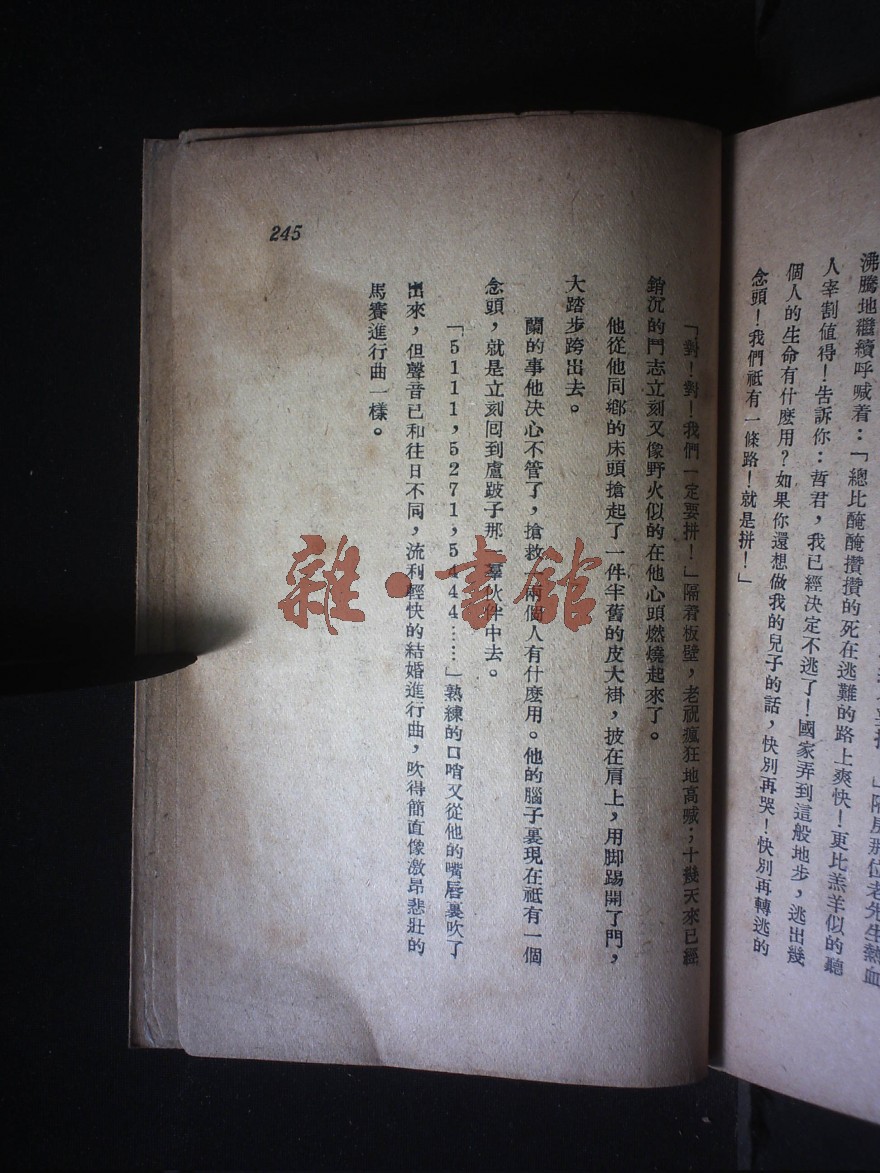 沸騰地繼續呼喊着：「總比醃醃攢攢的死在逃難的路上爽快！更比羔羊似的聽
人宰割值得！告訴你：哲君，我已經決定不逃了！國家弄到這般地步，逃出幾
個人的生命有什麼用？如果你還想做我的兒子的話，快別再哭！快別再轉逃的
念頭！我們祗有一條路！就是拼！」
「對！對！我們一定要拼！」隔着板壁，老祝瘋狂地高喊；十幾天來已經
銷沉的鬥志立刻又像野火似的在他心頭燃燒起來了。
他從他同鄉的床頭搶起了一件半舊的皮大褂，披在肩上，用脚踢開了門，
大踏步跨出去。
蘭的事他决心不管了，搶救一兩個人有什麼用。他的腦子裏現在祗有一個
念頭，就是立刻回到盧跛子那一羣伙伴中去。
「5111，5271，5444……」熟練的口哨又從他的嘴唇裏吹了
出來，但聲音已和往日不同，流利輕快的結婚進行曲，吹得簡直像激昂悲壯的
馬賽進行曲一樣。
245
雜·書館